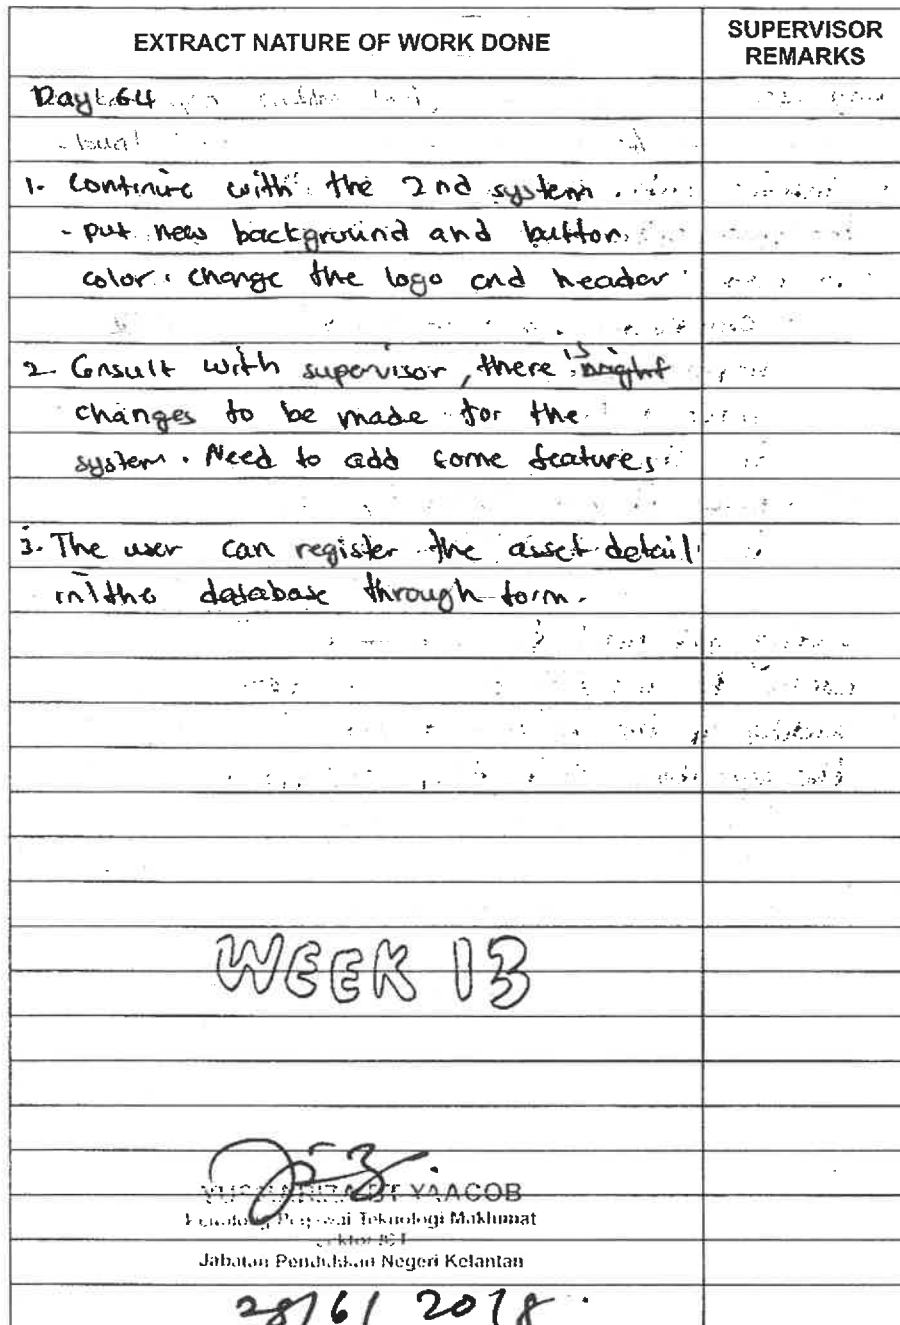 EXTRACT NATURE OF WORK DONE
SUPERVISOR
REMARKS
Day 64
1. Continue with the 2nd system.
- put new background and button
color. change the logo and header
2. Consult with supervisor, there is
changes to be made for the
system. Need to add some features
3. The user can register the asset detail
in the database through form.
WEEK 13
YAACOB
Penolong Pegawai Teknologi Maklumat
Jabatan Pendidikan Negeri Kelantan
28/6/2018.